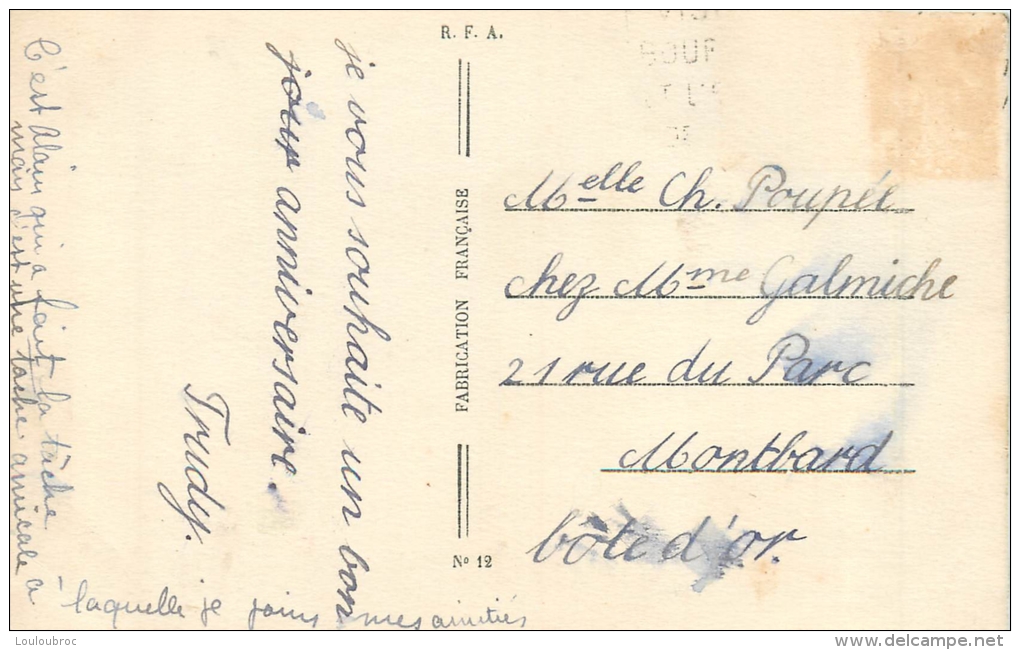 R. F. A.
je vous souhaite un bon
jour anniversaire.
Trudy.
C'est Alain qui a fait la tâche
mais c'est une tache amicale à
laquelle je joins mes amitiés
FABRICATION FRANÇAISE
N° 12
Melle Ch. Poupée
chez Mme Galmiche
21 rue du Parc
Montbard
Côte d'or
Louloubroc
www.delcampe.net